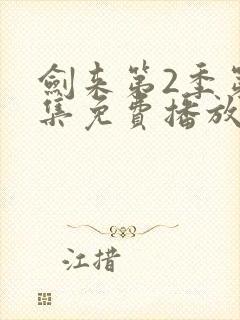 劍来第2季第
集免費播放
江措